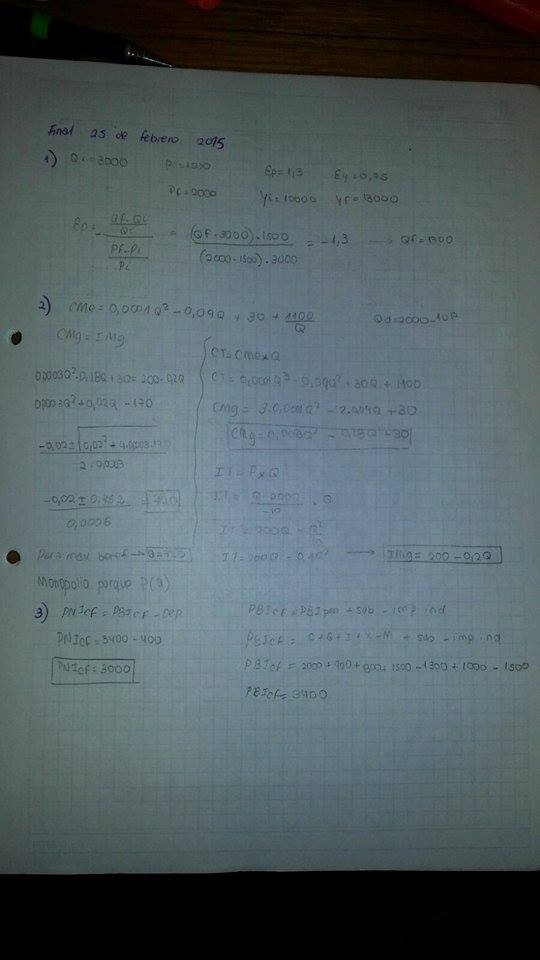 Final 25 de febrero 2015
1) Qi=3000 Pi=1500 Ep=1,3 Ey=0,75
Pf=2000 Yi=10000 Yf=13000
Ep= - (Qf-Qi)/Qi / (Pf-Pi)/Pi = (Qf-3000).1500 / (2000-1500).3000 = -1,3 → Qf=1700
2) CMe=0,0001Q² - 0,09Q + 30 + 1100/Q Qd=2000-10P
CMg=IMg
0,0003Q²-0,18Q+30=200-0,2Q
0,0003Q²+0,02Q-170
-0,02±√0,02²+4.0,0003.170 / 2.0,0003
-0,02 ± 0,452 / 0,0006 = 720
Para max benef → Q=720
Monopolio porque P(Q)
CT=CMe×Q
CT=0,0001Q³-0,09Q²+30Q+1100
CMg= 3.0,0001Q² - 2.0,09Q +30
CMg=0,0003Q² - 0,18Q+30
IT=P×Q
IT= Q-2000/-10 . Q
IT= 200Q - Q²/10
IT=200Q - 0,1Q² → IMg= 200-0,2Q
3) PNIcf=PBIcf-Dep
PNIcf=3400-400
PNIcf=3000
PBIcf=PBIpm + sub - imp ind
PBIcf= C+G+I+X-M + sub - imp ind
PBIcf= 2000+900+800+1500-1300+1000-1500
PBIcf=3400